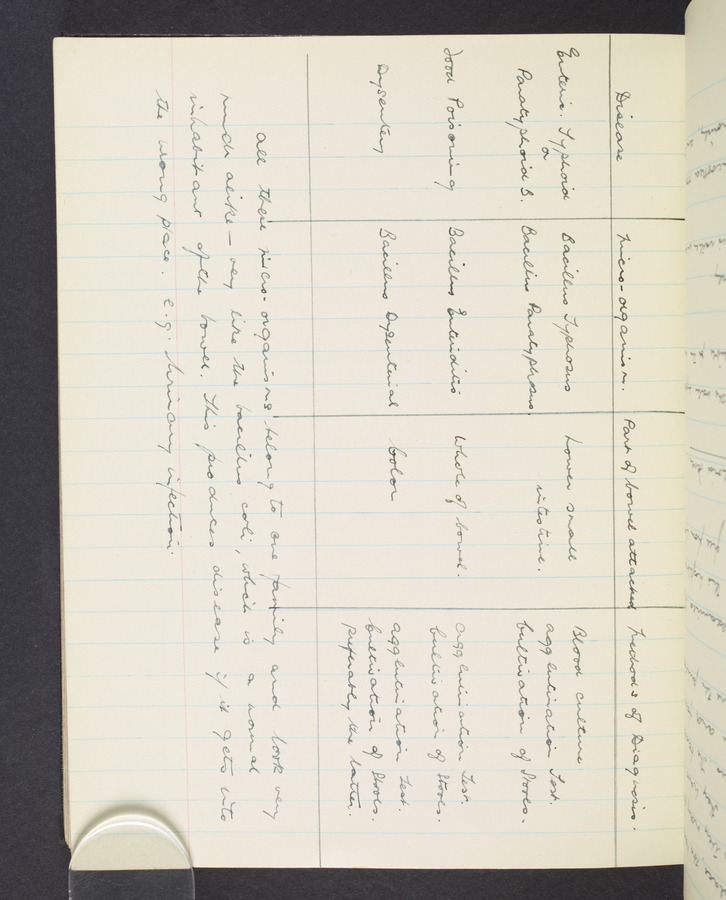 Disease Micro-organism. Part of bowel attacked Methods of Diagnosis.
Enteric. Typhoid Bacillus Typhosus Lower small Blood culture
or intestine. agglutination Test.
Paratyphoid B. Bacillus Paratyphosus. Cultivation of Stools.
Food Poisoning Bacillus Enteriditis Whole of bowel. agglutination Test.
Cultivation of Stools.
Dysentery Bacillus Dysenterial Colon agglutination Test.
Cultivation of Stools.
Preferably the latter.
All these micro-organisms belong to one family and look very
much alike – very like the bacillus coli, which is a normal
inhabitant of the bowel. This produces disease if it gets into
the wrong place. e.g. Urinary infection.